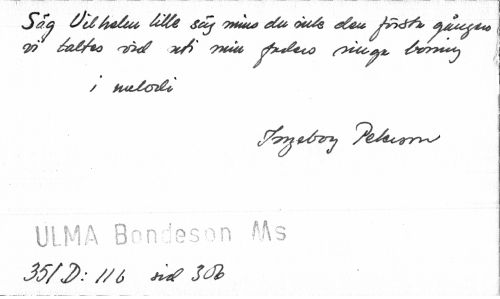 Säg Vilhelm lille säg mins du inte den första gången
vi taltes vid uti min faders ringa boning
i melodi
Ingeborg Peterson
ULMA Bondeson Ms
351 D: 116 sid 306